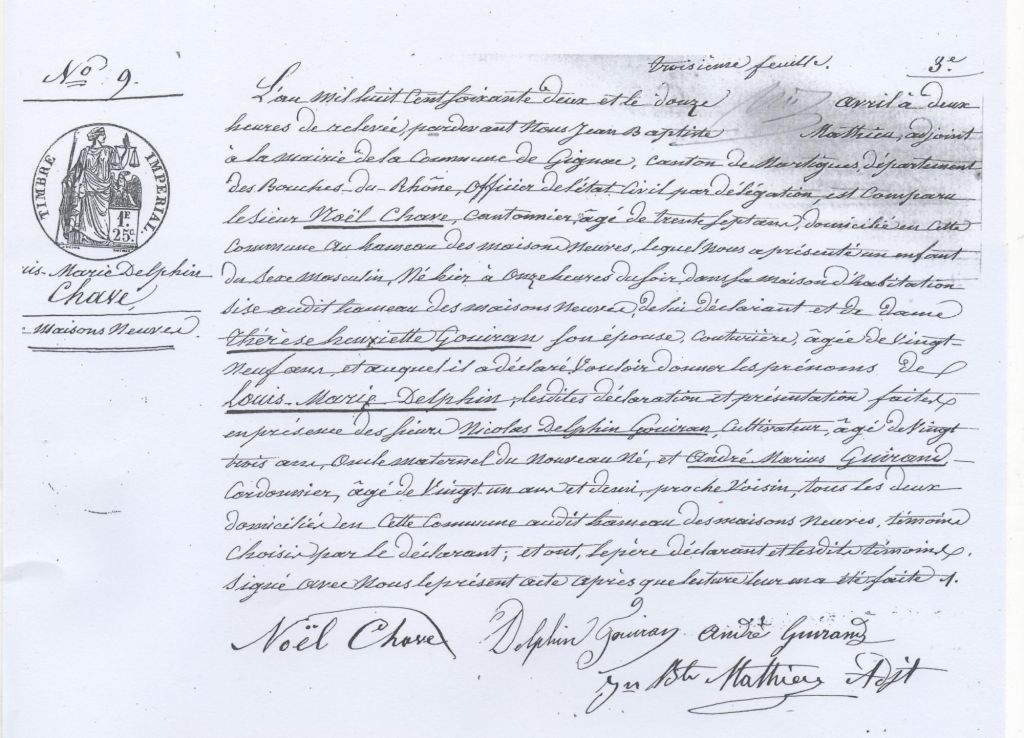 troisième feuille.
3.e
No 9.
TIMBRE IMPERIAL.
1F
25c
uis-Marie Delphin
Chave
- maisons neuves
L'an mil huit cent soixante deux et le douze avril à deux
heures de relevée, pardevant Nous Jean Baptiste Mathieu, adjoint
à la mairie de la Commune de Gignac, canton de Martigues, département
des Bouches-du-Rhône, Officier de l'état Civil par délégation, est Comparu
le sieur Noël Chave, Cantonnier, âgé de trente sept ans, domicilié en cette
Commune au hameau des maisons Neuves, lequel Nous a présenté un enfant
du Sexe masculin, Né hier, à onze heures du soir, dans sa maison d'habitation
sise audit hameau des maisons Neuves, de lui déclarant et de dame
Thérèse henriette Gouiran son épouse, Couturière, âgée de vingt-
Neuf ans, et auquel il a déclaré Vouloir donner les prénoms de
Louis-Marie Delphin, lesdites déclaration et présentation faites
en présence des sieurs Nicolas Delphin Gouiran, Cultivateur, âgé de Vingt
trois ans, Oncle maternel du Nouveau Né, et André Marius Guirand -
Cordonnier, âgé de Vingt un ans et demi, proche Voisin, tous les deux
domiciliés en Cette Commune audit hameau des maisons Neuves, témoins
Choisis par le déclarant; et ont, le père déclarant et lesdits témoins.
Signé avec Nous le présent acte après que lecture leur en a été faite.
Noël Chave Delphin Gouiran André Guirand
Jn Bte Mathieu Adjt